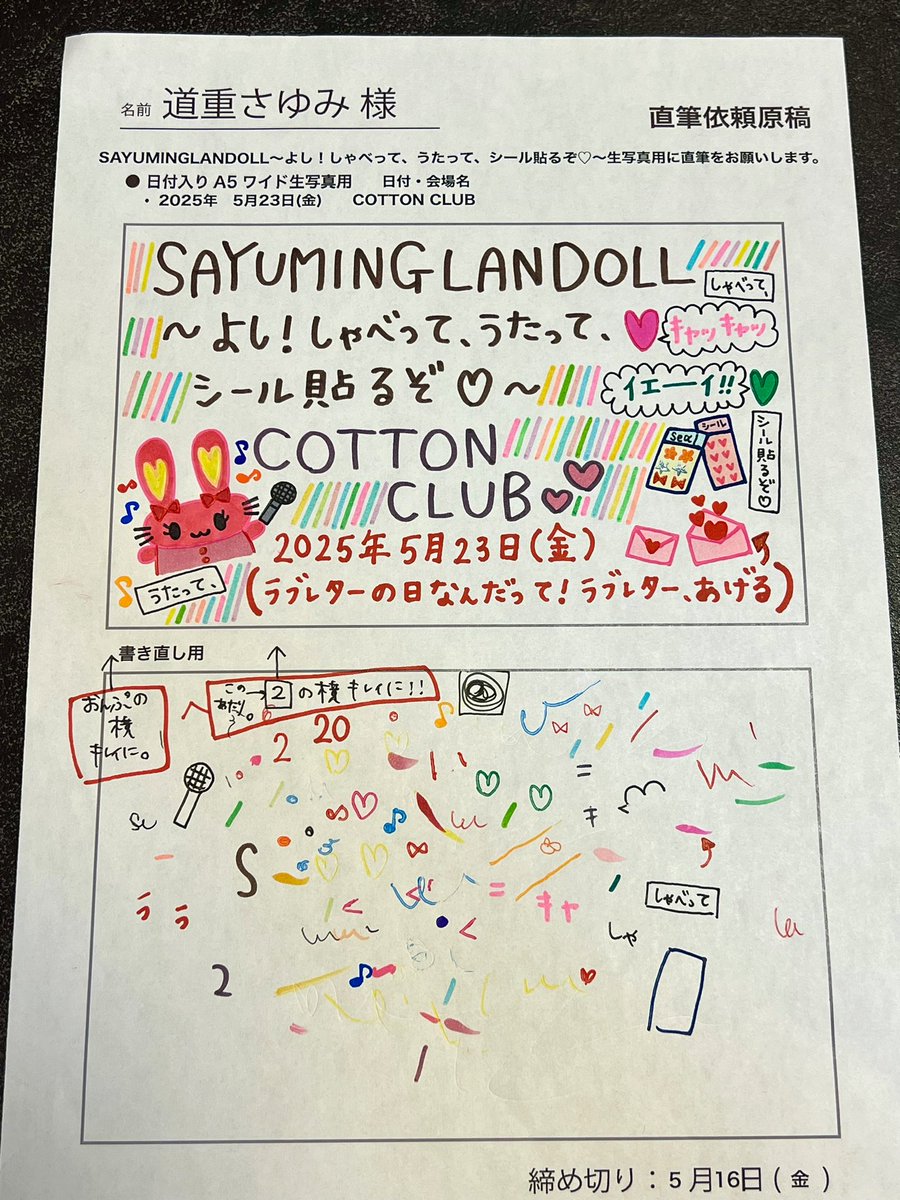 名前 道重さゆみ 様
直筆依頼原稿
SAYUMINGLANDOLL〜よし！しゃべって、うたって、シール貼るぞ♡〜生写真用に直筆をお願いします。
● 日付入り A5 ワイド生写真用 日付・会場名
・ 2025年 5月23日(金) COTTON CLUB
SAYUMINGLANDOLL
しゃべって、
〜よし！しゃべって、うたって、
キャッキャッ
シール貼るぞ♡〜
イエーイ!!
COTTON
seal
シール
シール貼るぞ♡
CLUB
2025年5月23日(金)
うたって、
(ラブレターの日なんだって！ラブレター、あげる)
書き直し用
おんぷの
横
キレイに。
このあたり。
→2の横キレイに!!
2 20
S
キ
キャ
ララ
しゃべって
しゃ
2
締め切り：5月16日(金)